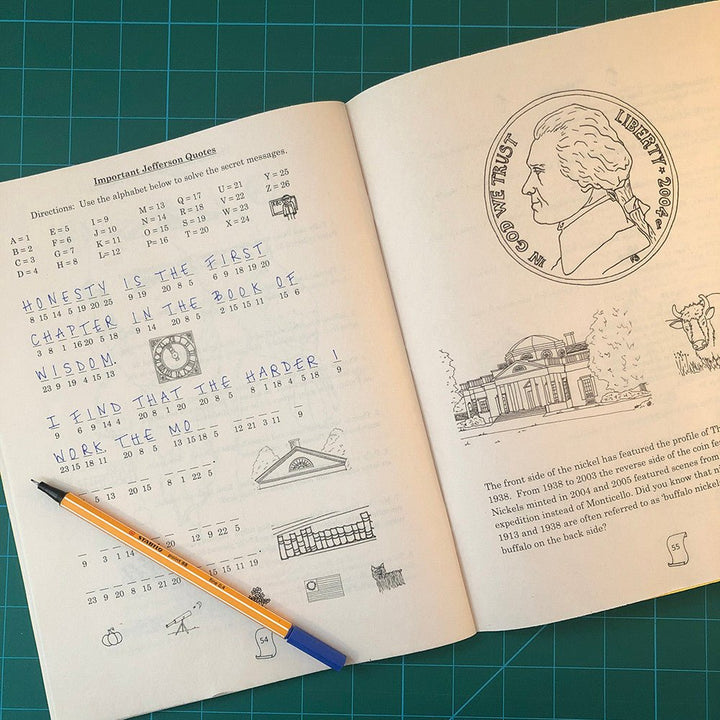 Important Jefferson Quotes
Directions: Use the alphabet below to solve the secret messages.
A = 1 E = 5 I = 9 M = 13 Q = 17 U = 21 Y = 25
B = 2 F = 6 J = 10 N = 14 R = 18 V = 22 Z = 26
C = 3 G = 7 K = 11 O = 15 S = 19 W = 23
D = 4 H = 8 L= 12 P= 16 T = 20 X = 24
HONESTY IS THE FIRST
8 15 14 5 19 20 25 9 19 20 8 5 6 9 18 19 20
CHAPTER IN THE BOOK OF
3 8 1 16 20 5 18 9 14 20 8 5 2 15 15 11 15 6
WISDOM.
23 9 19 4 15 13
I FIND THAT THE HARDER I
9 6 9 14 4 20 8 1 20 20 8 5 8 1 18 4 5 18 9
WORK THE MO
23 15 18 11 20 8 5 13 15 18 5 12 21 3 11 9
5 13 20 15 8 1 22 5.
9 3 1 14 20 12 9 22 5
23 9 20 8 15 21 20 15 15 11 19.
STABILO point 88
54
IN GOD WE TRUST
LIBERTY
2004
The front side of the nickel has featured the profile of
1938. From 1938 to 2003 the reverse side of the coin
Nickels minted in 2004 and 2005 featured scenes from
expedition instead of Monticello. Did you know that
1913 and 1938 are often referred to as 'buffalo nickel
buffalo on the back side?
55